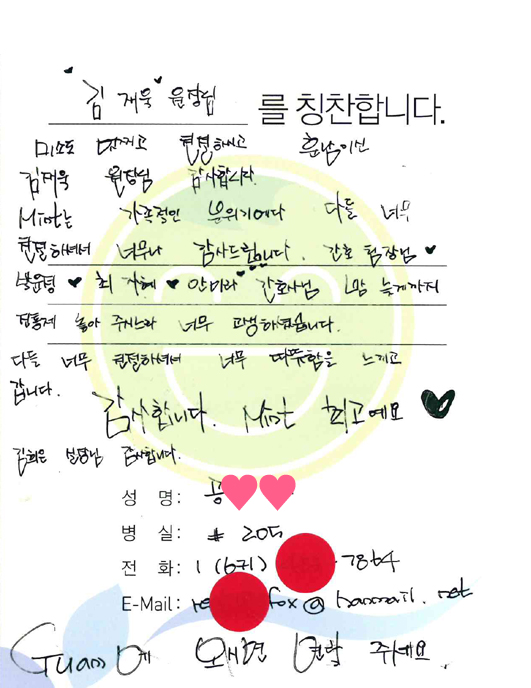 김재욱 원장님 를 칭찬합니다.
미소도 멋지고 친절하시고 훈남이신
김재욱 원장님 감사합니다.
Mint는 가족적인 분위기에다 다들 너무
친절하셔서 너무나 감사드립니다. 간호 팀장님 ♥
♥ 최지혜 ♥ 안미라 간호사님 밤 늦게까지
진통제 놓아 주시느라 너무 고생하셨습니다.
다들 너무 친절하셔서 너무 따뜻함을 느끼고
갑니다.
감사합니다. Mint 최고예요 ♥
김희은 실장님 감사합니다.
성 명: 공
병 실: # 205
전 화: 1 (671) 7864
E-Mail: fox@hanmail.net
Guam에 오시면 연락 주세요.